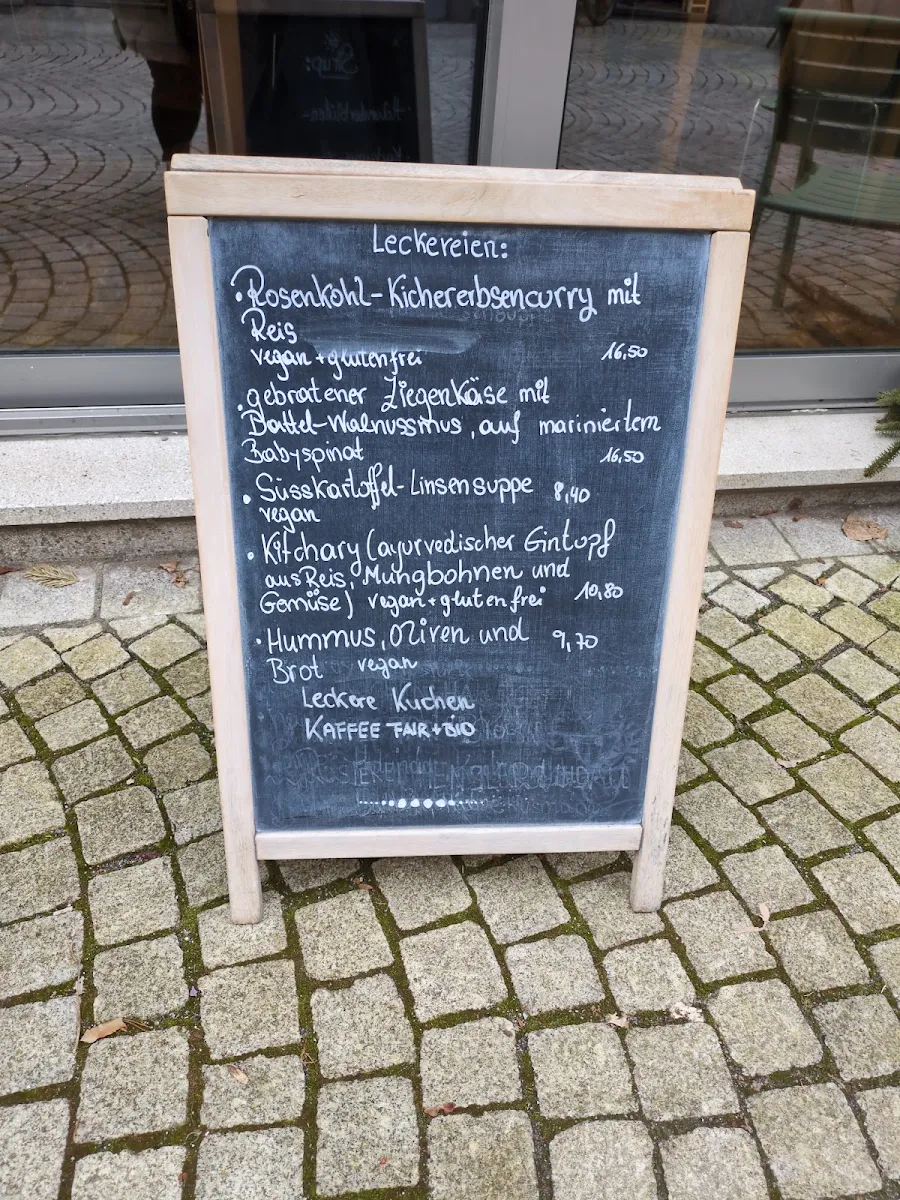 Sirup:
Leckereien:
• Rosenkohl-Kichererbsencurry mit
Reis
vegan + glutenfrei 16,50
• gebratener Ziegenkäse mit
Dattel-Walnussmus, auf mariniertem
Babyspinat 16,50
• Süsskartoffel-Linsensuppe 8,40
vegan
• Kitchary (ayurvedischer Eintopf
aus Reis, Mungbohnen und
Gemüse) vegan + glutenfrei 10,80
• Hummus, Oliven und 9,70
Brot vegan
Leckere Kuchen
KAFFEE FAIR + BIO